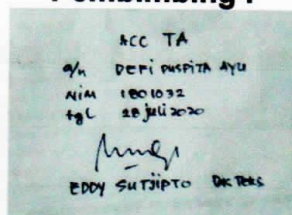 Pembimbing I
ACC TA
a/n DEFI PUSPITA AYU
NIM 1801032
tgl 28 juli 2020
EDDY SUTJIPTO